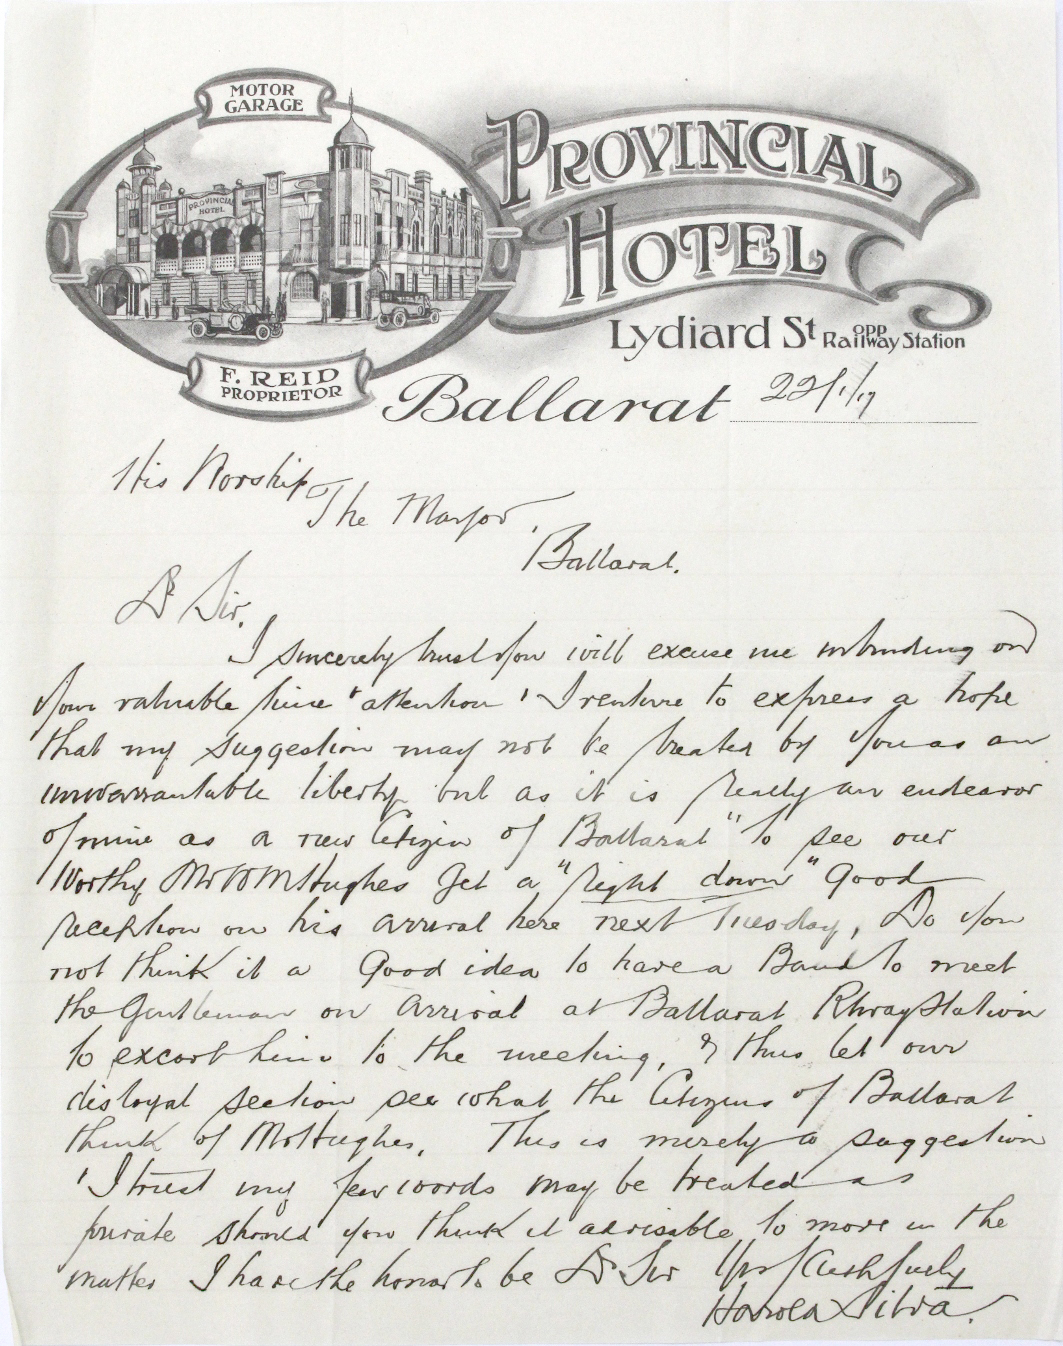 MOTOR
GARAGE
PROVINCIAL
HOTEL
PROVINCIAL
HOTEL
Lydiard St opp Railway Station
F. REID
PROPRIETOR
Ballarat 22/1/17
His Worship
The Mayor,
Ballarat.
Dr Sir,
I sincerely trust you will excuse me intruding on
your valuable time & attention & I venture to express a hope
that my suggestion may not be treated by you as an
unwarrantable liberty but as it is really an endeavor
of mine as a new Citizen of Ballarat to see our
Worthy Mr W M Hughes get a "right down" good
reception on his arrival here next Tuesday, Do you
not think it a good idea to have a Band to meet
the Gentleman on arrival at Ballarat Rlway Station
to excort him to the meeting, & thus let our
disloyal section see what the Citizens of Ballarat
think of Mr Hughes. This is merely a suggestion
& I trust my few words may be treated as
private should you think it advisable to move in the
matter I have the honor to be Dr Sir Yrs faithfully
Harold Silva.